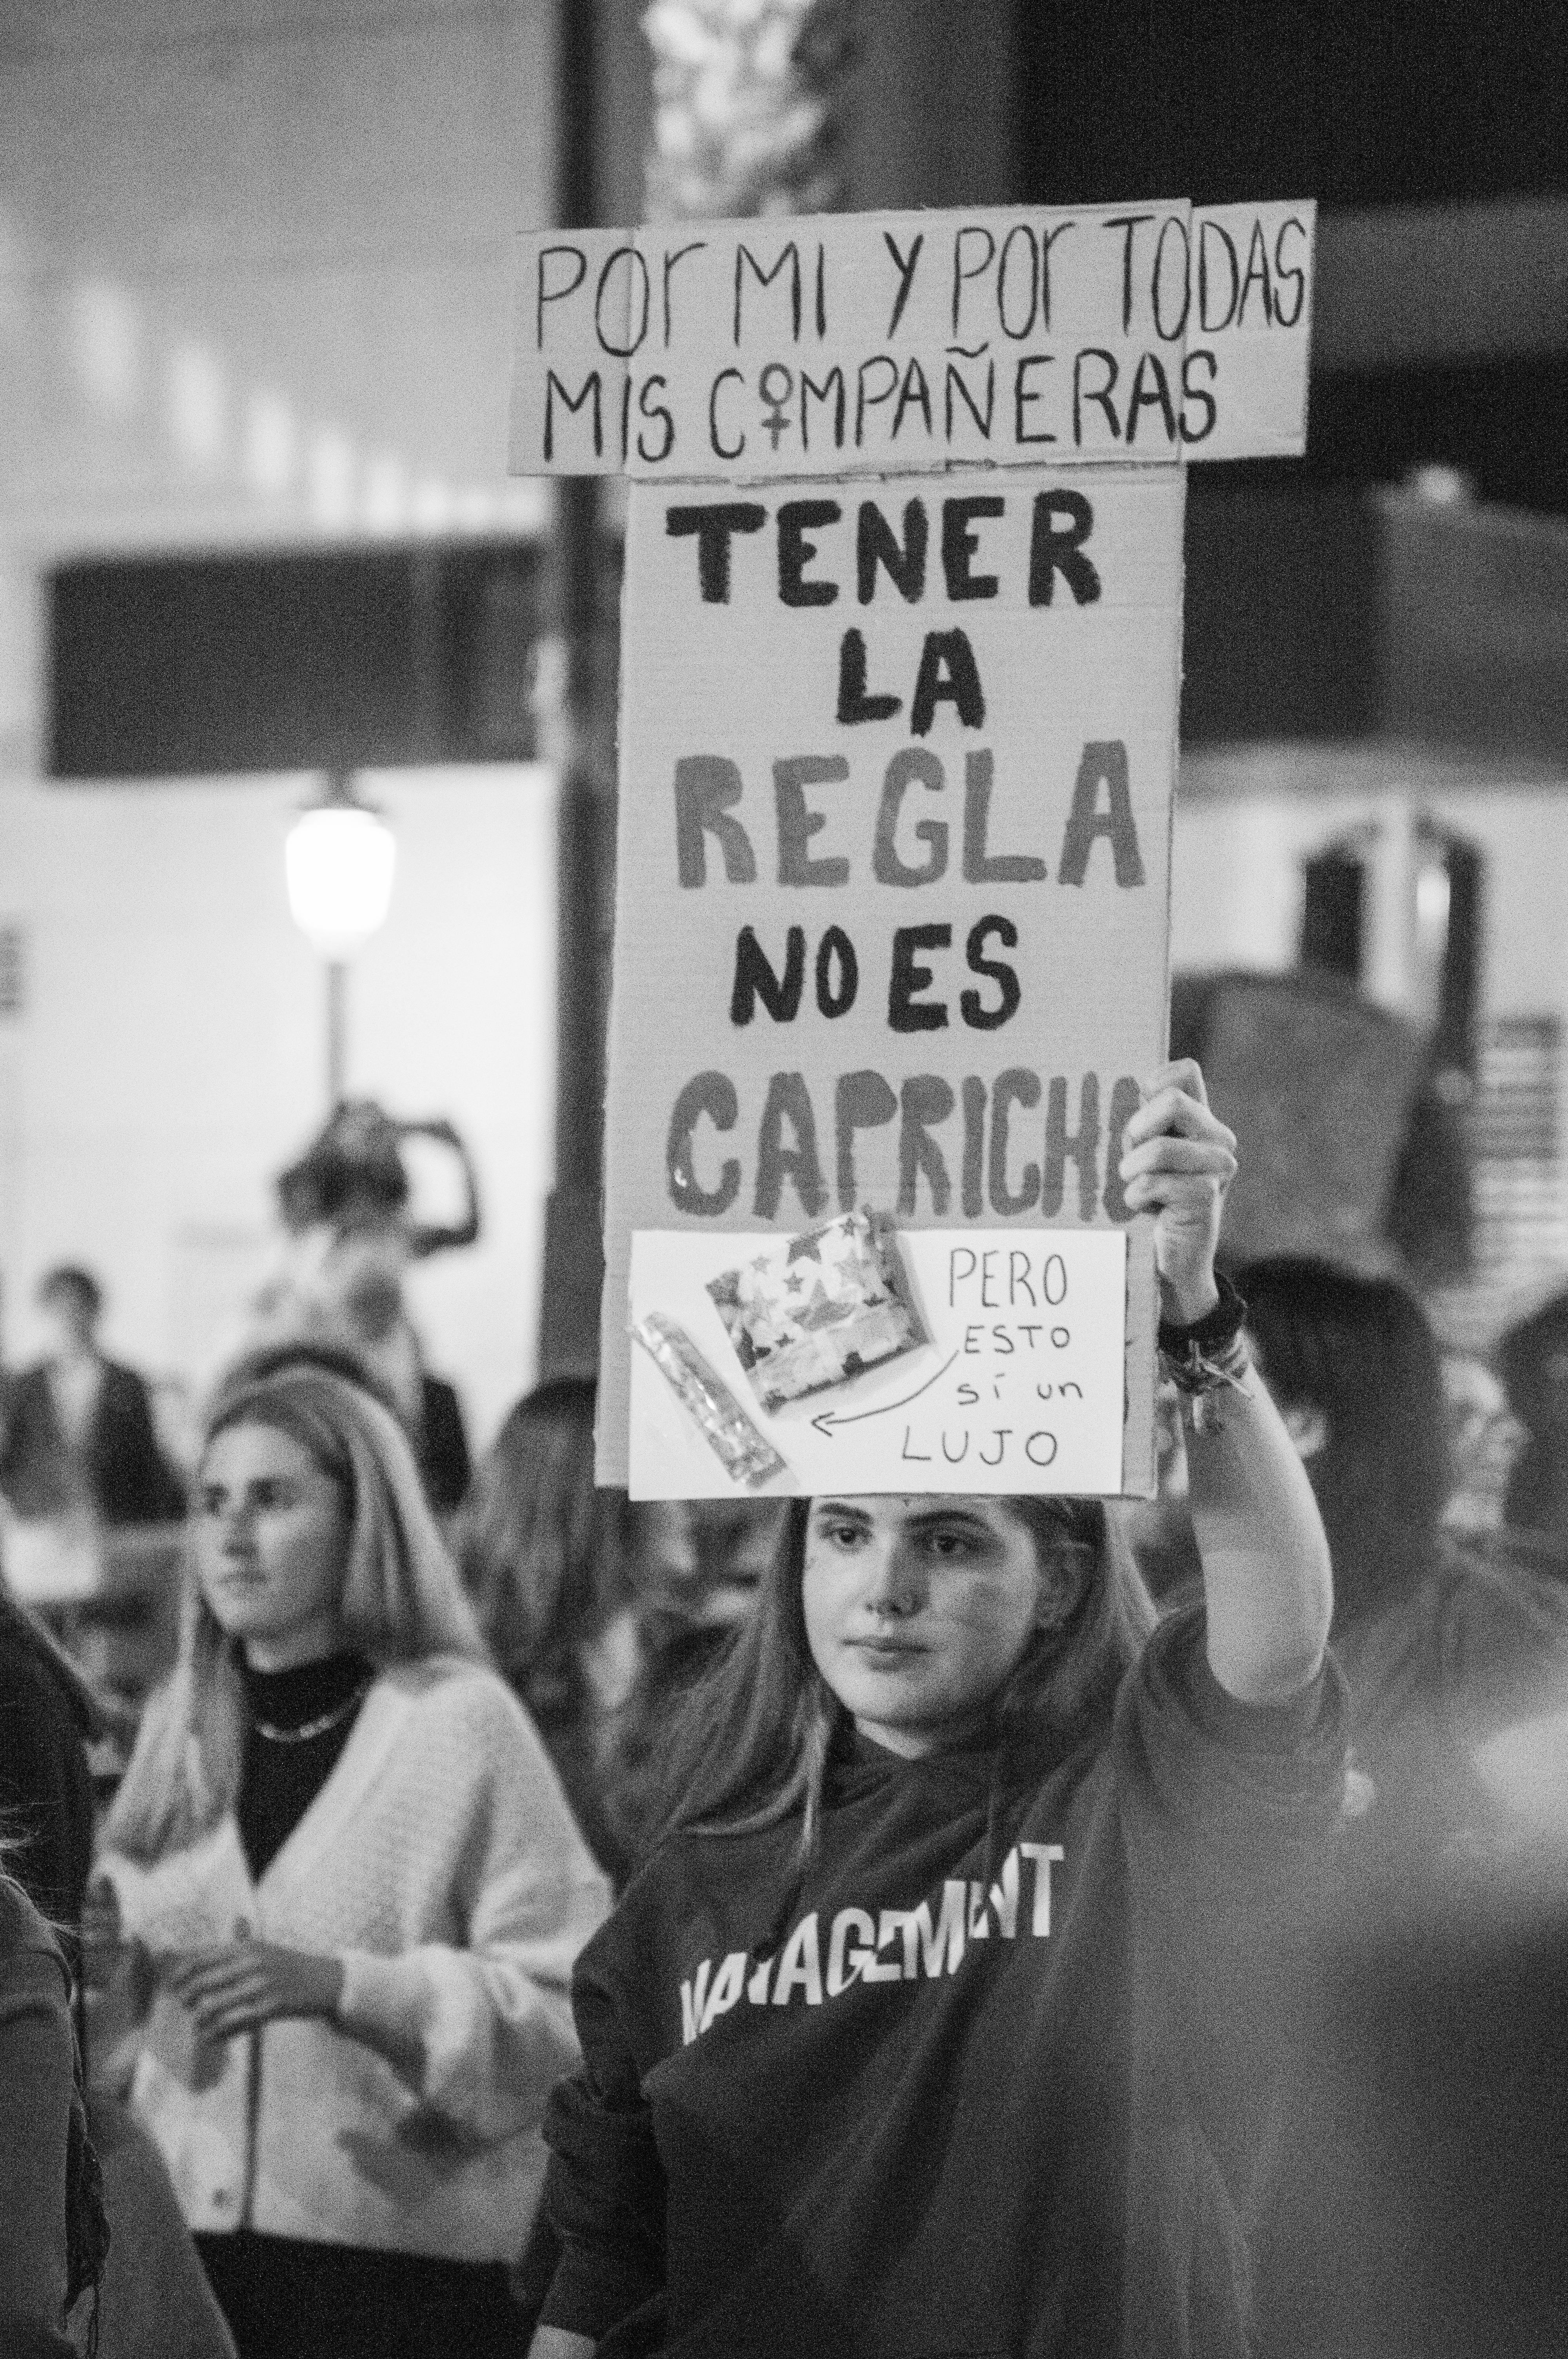 POr MI Y POr TODAS
MIS C♀MPAÑERAS
TENER
LA
REGLA
NO ES
CAPRICHO
PERO
ESTO
sí un
LUJO
MANAGEMENT